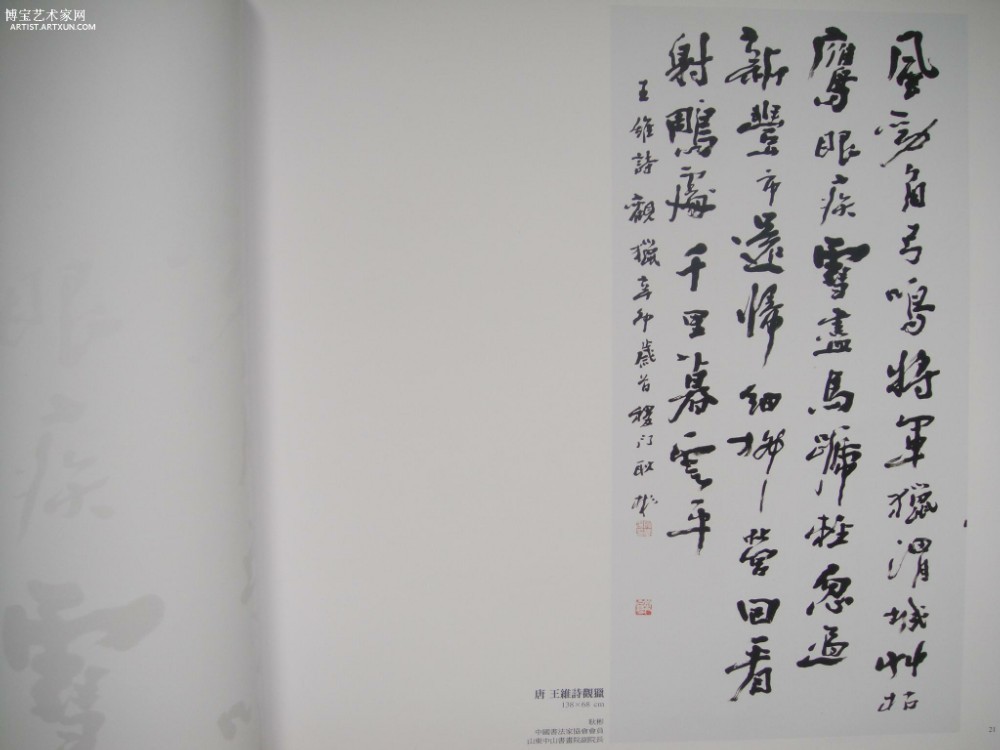 博宝艺术家网
ARTIST.ARTXUN.COM
風勁角弓鳴將軍獵渭城艸枯
鷹眼疾雪盡馬蹄輕忽過
新豐市還歸細柳營回看
射鵰處千里暮雲平
王維詩觀獵辛卯歲首稷門耿彬
唐 王維詩觀獵
138×68 cm
耿彬
中國書法家協會會員
山東中山書畫院副院長
眼疾雪